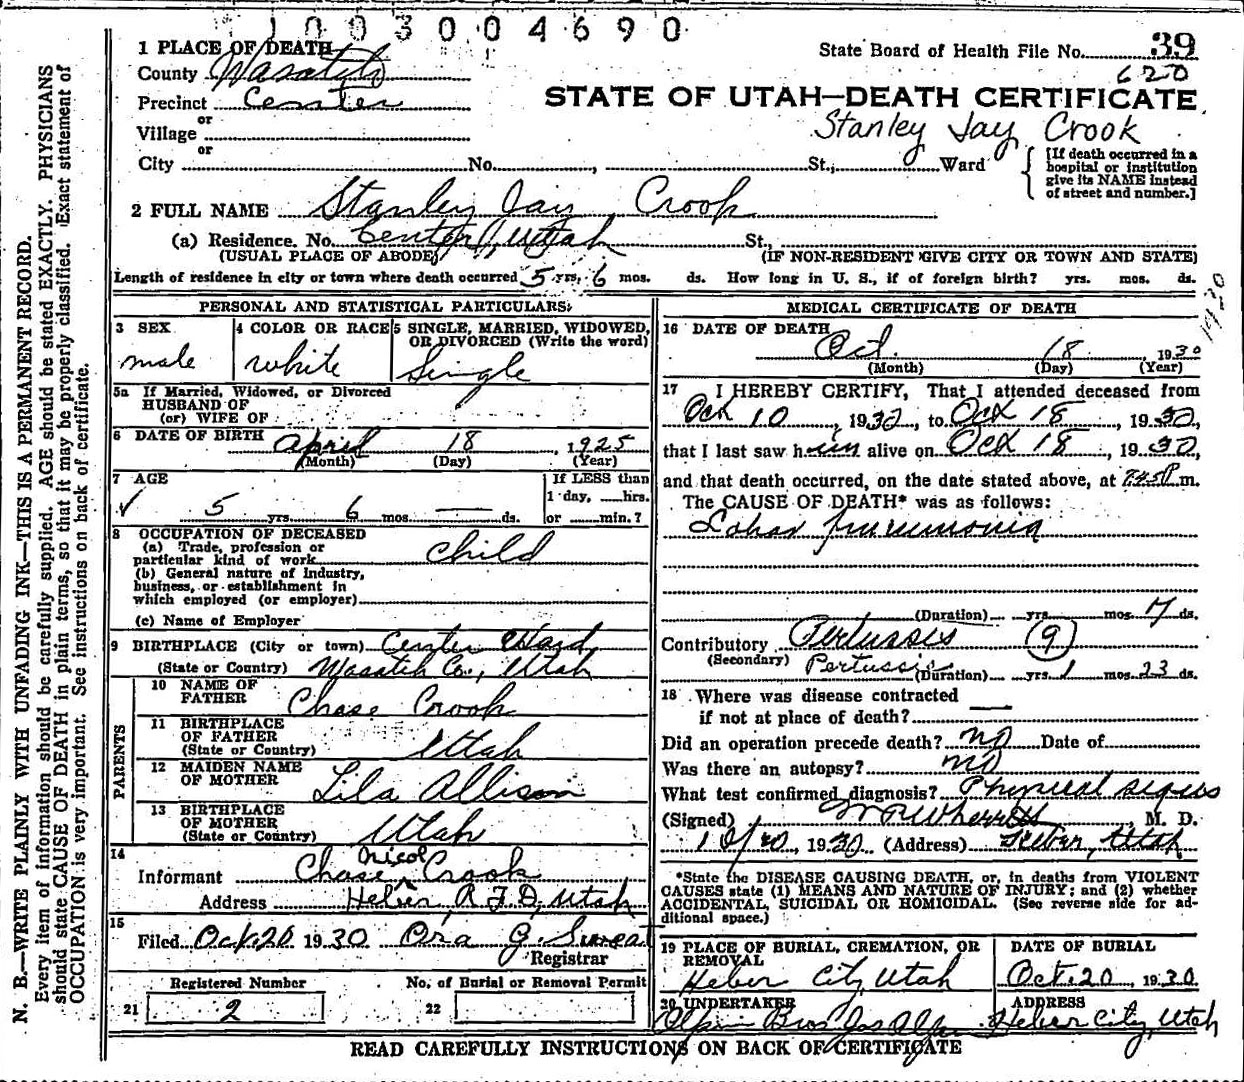 1003004690
1 PLACE OF DEATH
State Board of Health File No. 39
County Wasatch
620
Precinct Center
STATE OF UTAH—DEATH CERTIFICATE
or
Village
Stanley Jay Crook
or
City No. , St., Ward
[If death occurred in a hospital or institution give its NAME instead of street and number.]
2 FULL NAME Stanley Jay Crook
(a) Residence. No. Center, Utah St.,
(USUAL PLACE OF ABODE) (IF NON-RESIDENT GIVE CITY OR TOWN AND STATE)
Length of residence in city or town where death occurred 5 yrs. 6 mos. ds. How long in U. S., if of foreign birth? yrs. mos. ds.
PERSONAL AND STATISTICAL PARTICULARS
3 SEX
male
4 COLOR OR RACE
white
5 SINGLE, MARRIED, WIDOWED, OR DIVORCED (Write the word)
Single
5a If Married, Widowed, or Divorced
HUSBAND OF
(or) WIFE OF
6 DATE OF BIRTH April 18, 1925
(Month) (Day) (Year)
7 AGE
5 yrs. 6 mos. — ds.
If LESS than
1 day, hrs.
or min.?
8 OCCUPATION OF DECEASED
(a) Trade, profession or
particular kind of work child
(b) General nature of Industry,
business, or establishment in
which employed (or employer)
(c) Name of Employer
9 BIRTHPLACE (City or town) Center Ward
(State or Country) Wasatch Co., Utah
PARENTS
10 NAME OF
FATHER Chase Crook
11 BIRTHPLACE
OF FATHER
(State or Country) Utah
12 MAIDEN NAME
OF MOTHER Lila Allison
13 BIRTHPLACE
OF MOTHER
(State or Country) Utah
14
Informant Chase Nicol Crook
Address Heber, R.F.D, Utah
15
Filed Oct. 20 1930 Ora J.
Registrar
Registered Number
No. of Burial or Removal Permit
21 2
22
MEDICAL CERTIFICATE OF DEATH
16 DATE OF DEATH
Oct. 18, 1930
(Month) (Day) (Year)
17 I HEREBY CERTIFY, That I attended deceased from
Oct 10, 1930, to Oct 18, 1930,
that I last saw him alive on Oct 18, 1930,
and that death occurred, on the date stated above, at 7:45 P m.
The CAUSE OF DEATH* was as follows:
Lobar pneumonia
(Duration) yrs. mos. 7 ds.
Contributory Pertussis (9)
(Secondary) Pertussis (Duration) yrs. 1 mos. 23 ds.
18 Where was disease contracted
if not at place of death?
Did an operation precede death? no Date of
Was there an autopsy? no
What test confirmed diagnosis? Physical signs
(Signed) W R Wherritt, M. D.
10/20, 1930 (Address) Heber, Utah
*State the DISEASE CAUSING DEATH, or, in deaths from VIOLENT
CAUSES state (1) MEANS AND NATURE OF INJURY; and (2) whether
ACCIDENTAL, SUICIDAL OR HOMICIDAL. (See reverse side for ad-
ditional space.)
19 PLACE OF BURIAL, CREMATION, OR
REMOVAL
Heber City, Utah
DATE OF BURIAL
Oct. 20, 1930
20 UNDERTAKER
Bros
ADDRESS
Heber City, Utah
READ CAREFULLY INSTRUCTIONS ON BACK OF CERTIFICATE
N. B.—WRITE PLAINLY WITH UNFADING INK—THIS IS A PERMANENT RECORD.
Every item of information should be carefully supplied. AGE should be stated EXACTLY. PHYSICIANS
should state CAUSE OF DEATH in plain terms, so that it may be properly classified. Exact statement of
OCCUPATION is very important. See instructions on back of certificate.